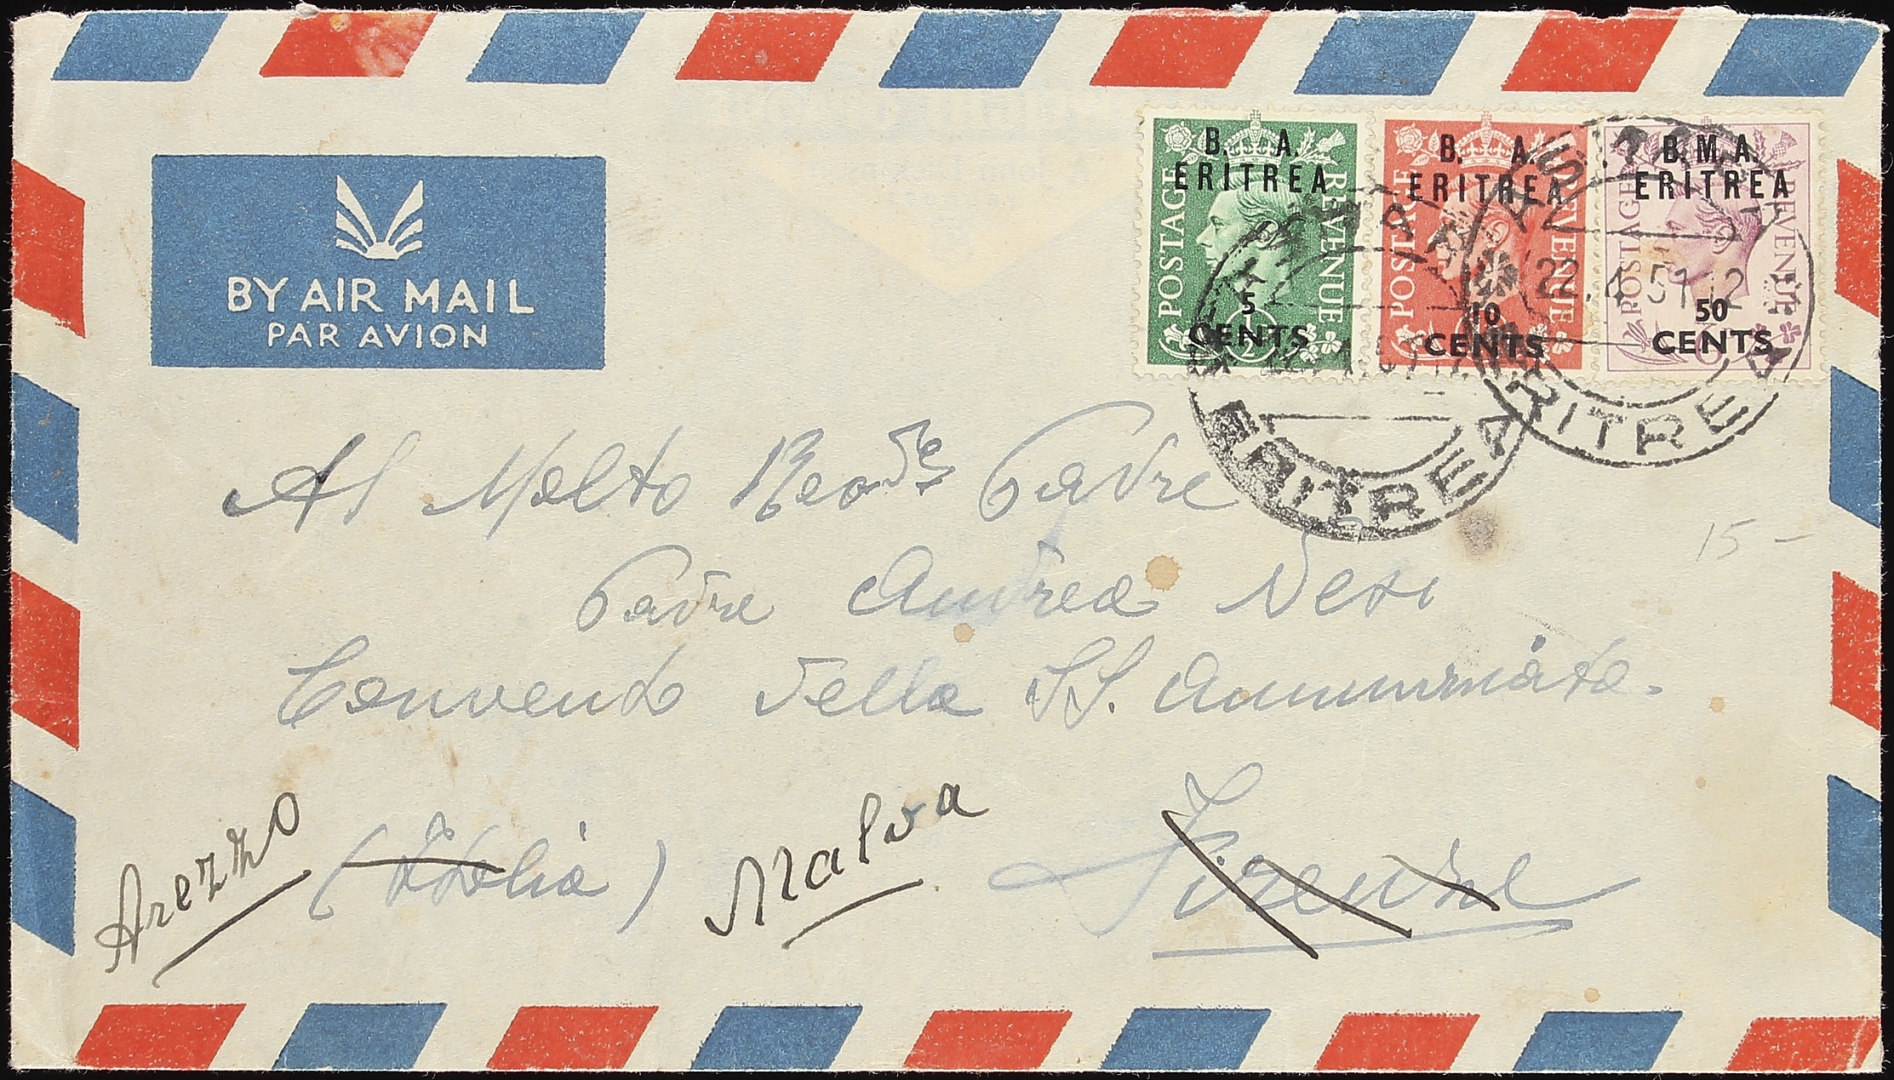 BY AIR MAIL
PAR AVION
B. A.
ERITREA
POSTAGE
REVENUE
5
CENTS
B. A.
ERITREA
POSTAGE
REVENUE
10
CENTS
B.M.A.
ERITREA
POSTAGE
REVENUE
50
CENTS
22.4.51.12
ERITREA
ERITREA
15-
Al Molto Revdo Padre
Padre Andrea
Convento della SS. Annunziata.
(Italia)
Firenze
Arezzo